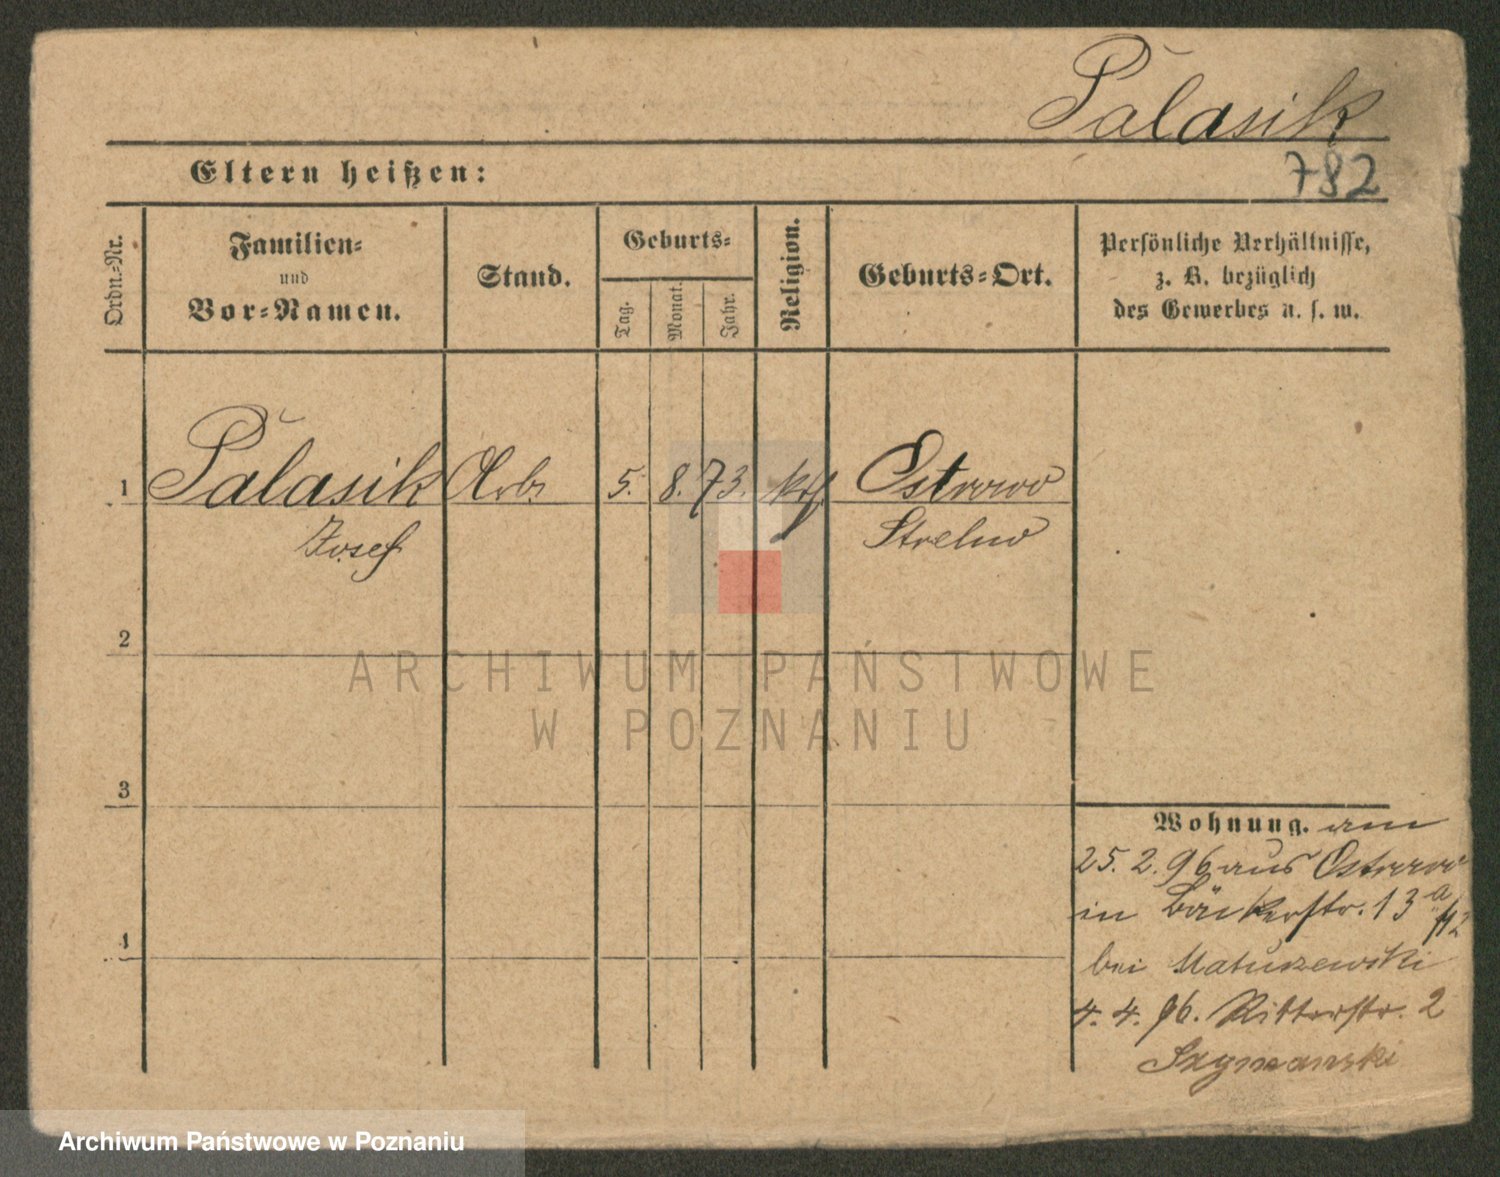 Palasik
782
Eltern heißen:
Ordn.-Nr.
Familien-
und
Vor-Namen.
Stand.
Geburts-
Tag.
Monat.
Jahr.
Religion.
Geburts-Ort.
Persönliche Verhältnisse,
z. B. bezüglich
des Gewerbes u. s. w.
1 Palasik Arb. 5. 8. 73. kth Ostrowo
Josef Strelno
2
3
4
ARCHIWUM PAŃSTWOWE
W POZNANIU
Wohnung. am
25. 2. 96 aus Ostrowo
in Bäckerstr. 13 a
bei Matuszewski
4. 4. 96. Ritterstr. 2
Szymanski
Archiwum Państwowe w Poznaniu